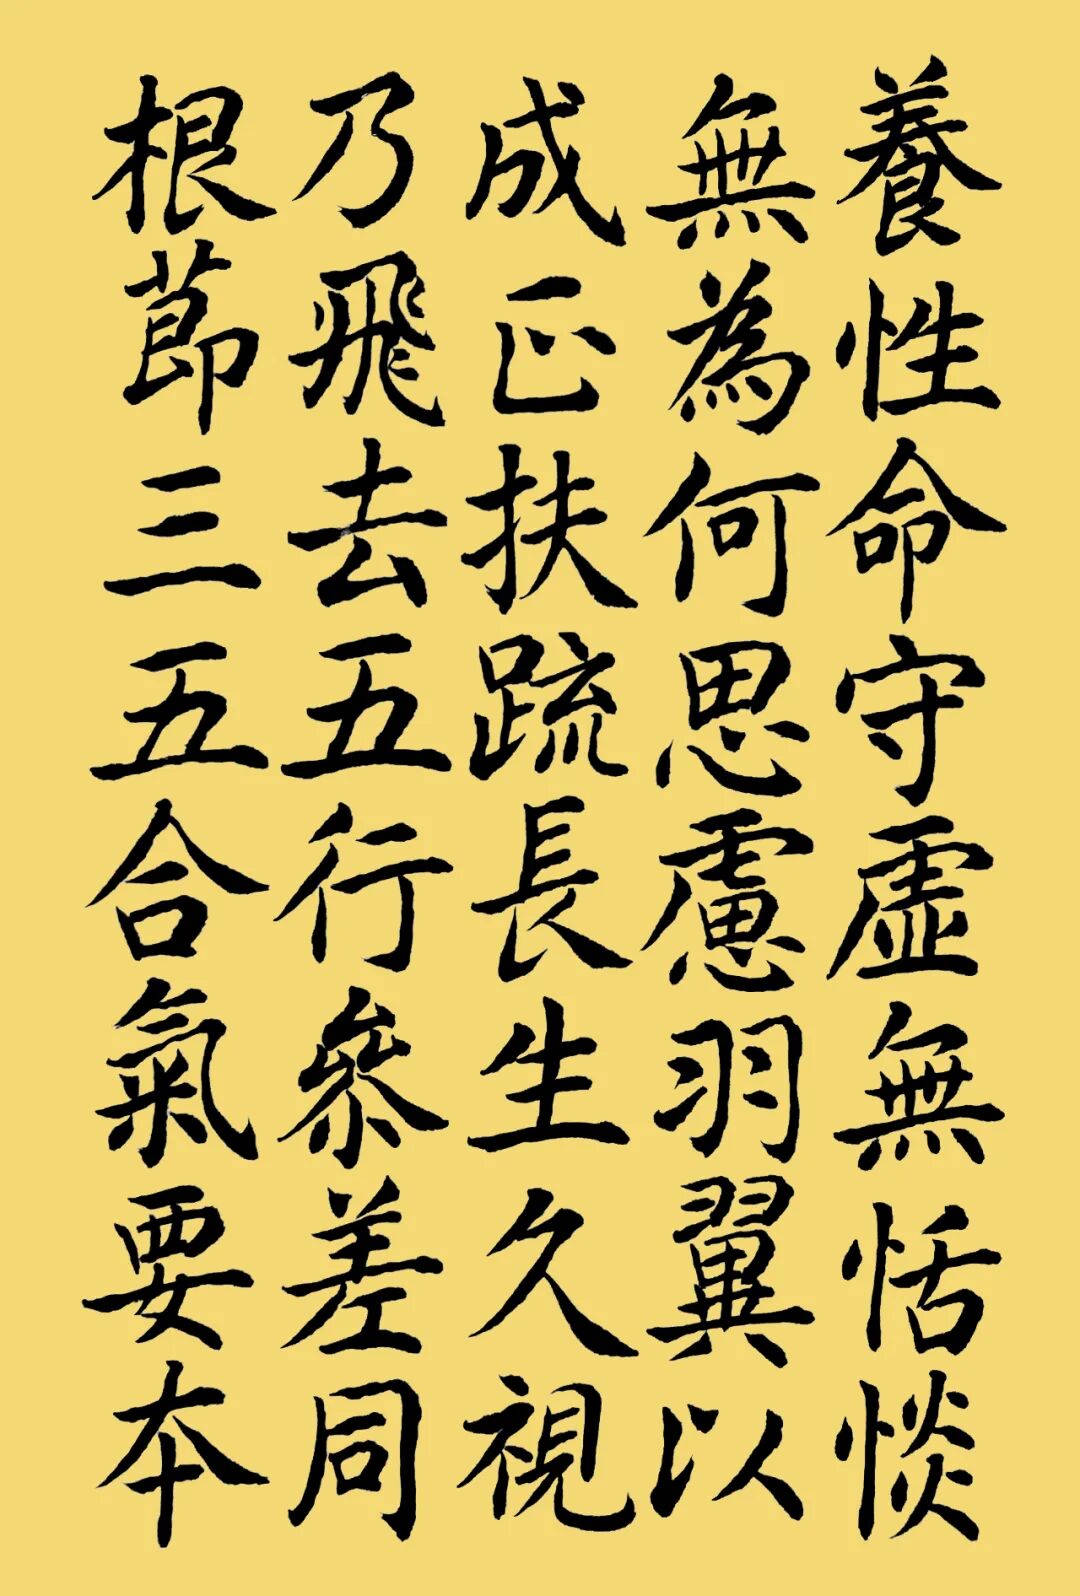 養性命守虛無恬惔
無為何思慮羽翼以
成正扶踈長生久視
乃飛去五行參差同
根節三五合氣要本